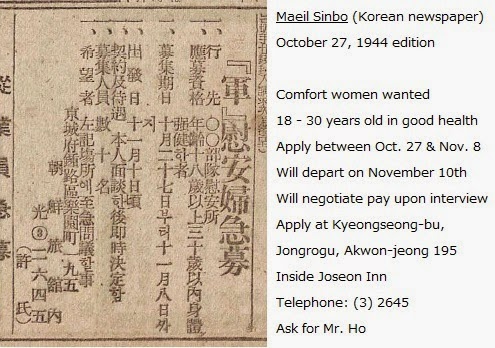 『軍』慰安婦急募
一、行先 ○○部隊慰安所
一、應募資格 年齡十八歲以上三十歲以內身體
强健한者
一、募集期日 十月二十七日부터十一月八日까
지
一、出發日 十一月十日頃
一、契約及待遇 本人面談한後卽時決定함
一、募集人員 數十名
一、希望者 左記場所에至急問議할事
京城府鍾路區樂園町一九五
朝鮮旅館內
光③二六四五
(許氏)
從業員急募
Maeil Sinbo (Korean newspaper)
October 27, 1944 edition
Comfort women wanted
18 - 30 years old in good health
Apply between Oct. 27 & Nov. 8
Will depart on November 10th
Will negotiate pay upon interview
Apply at Kyeongseong-bu,
Jongrogu, Akwon-jeong 195
Inside Joseon Inn
Telephone: (3) 2645
Ask for Mr. Ho